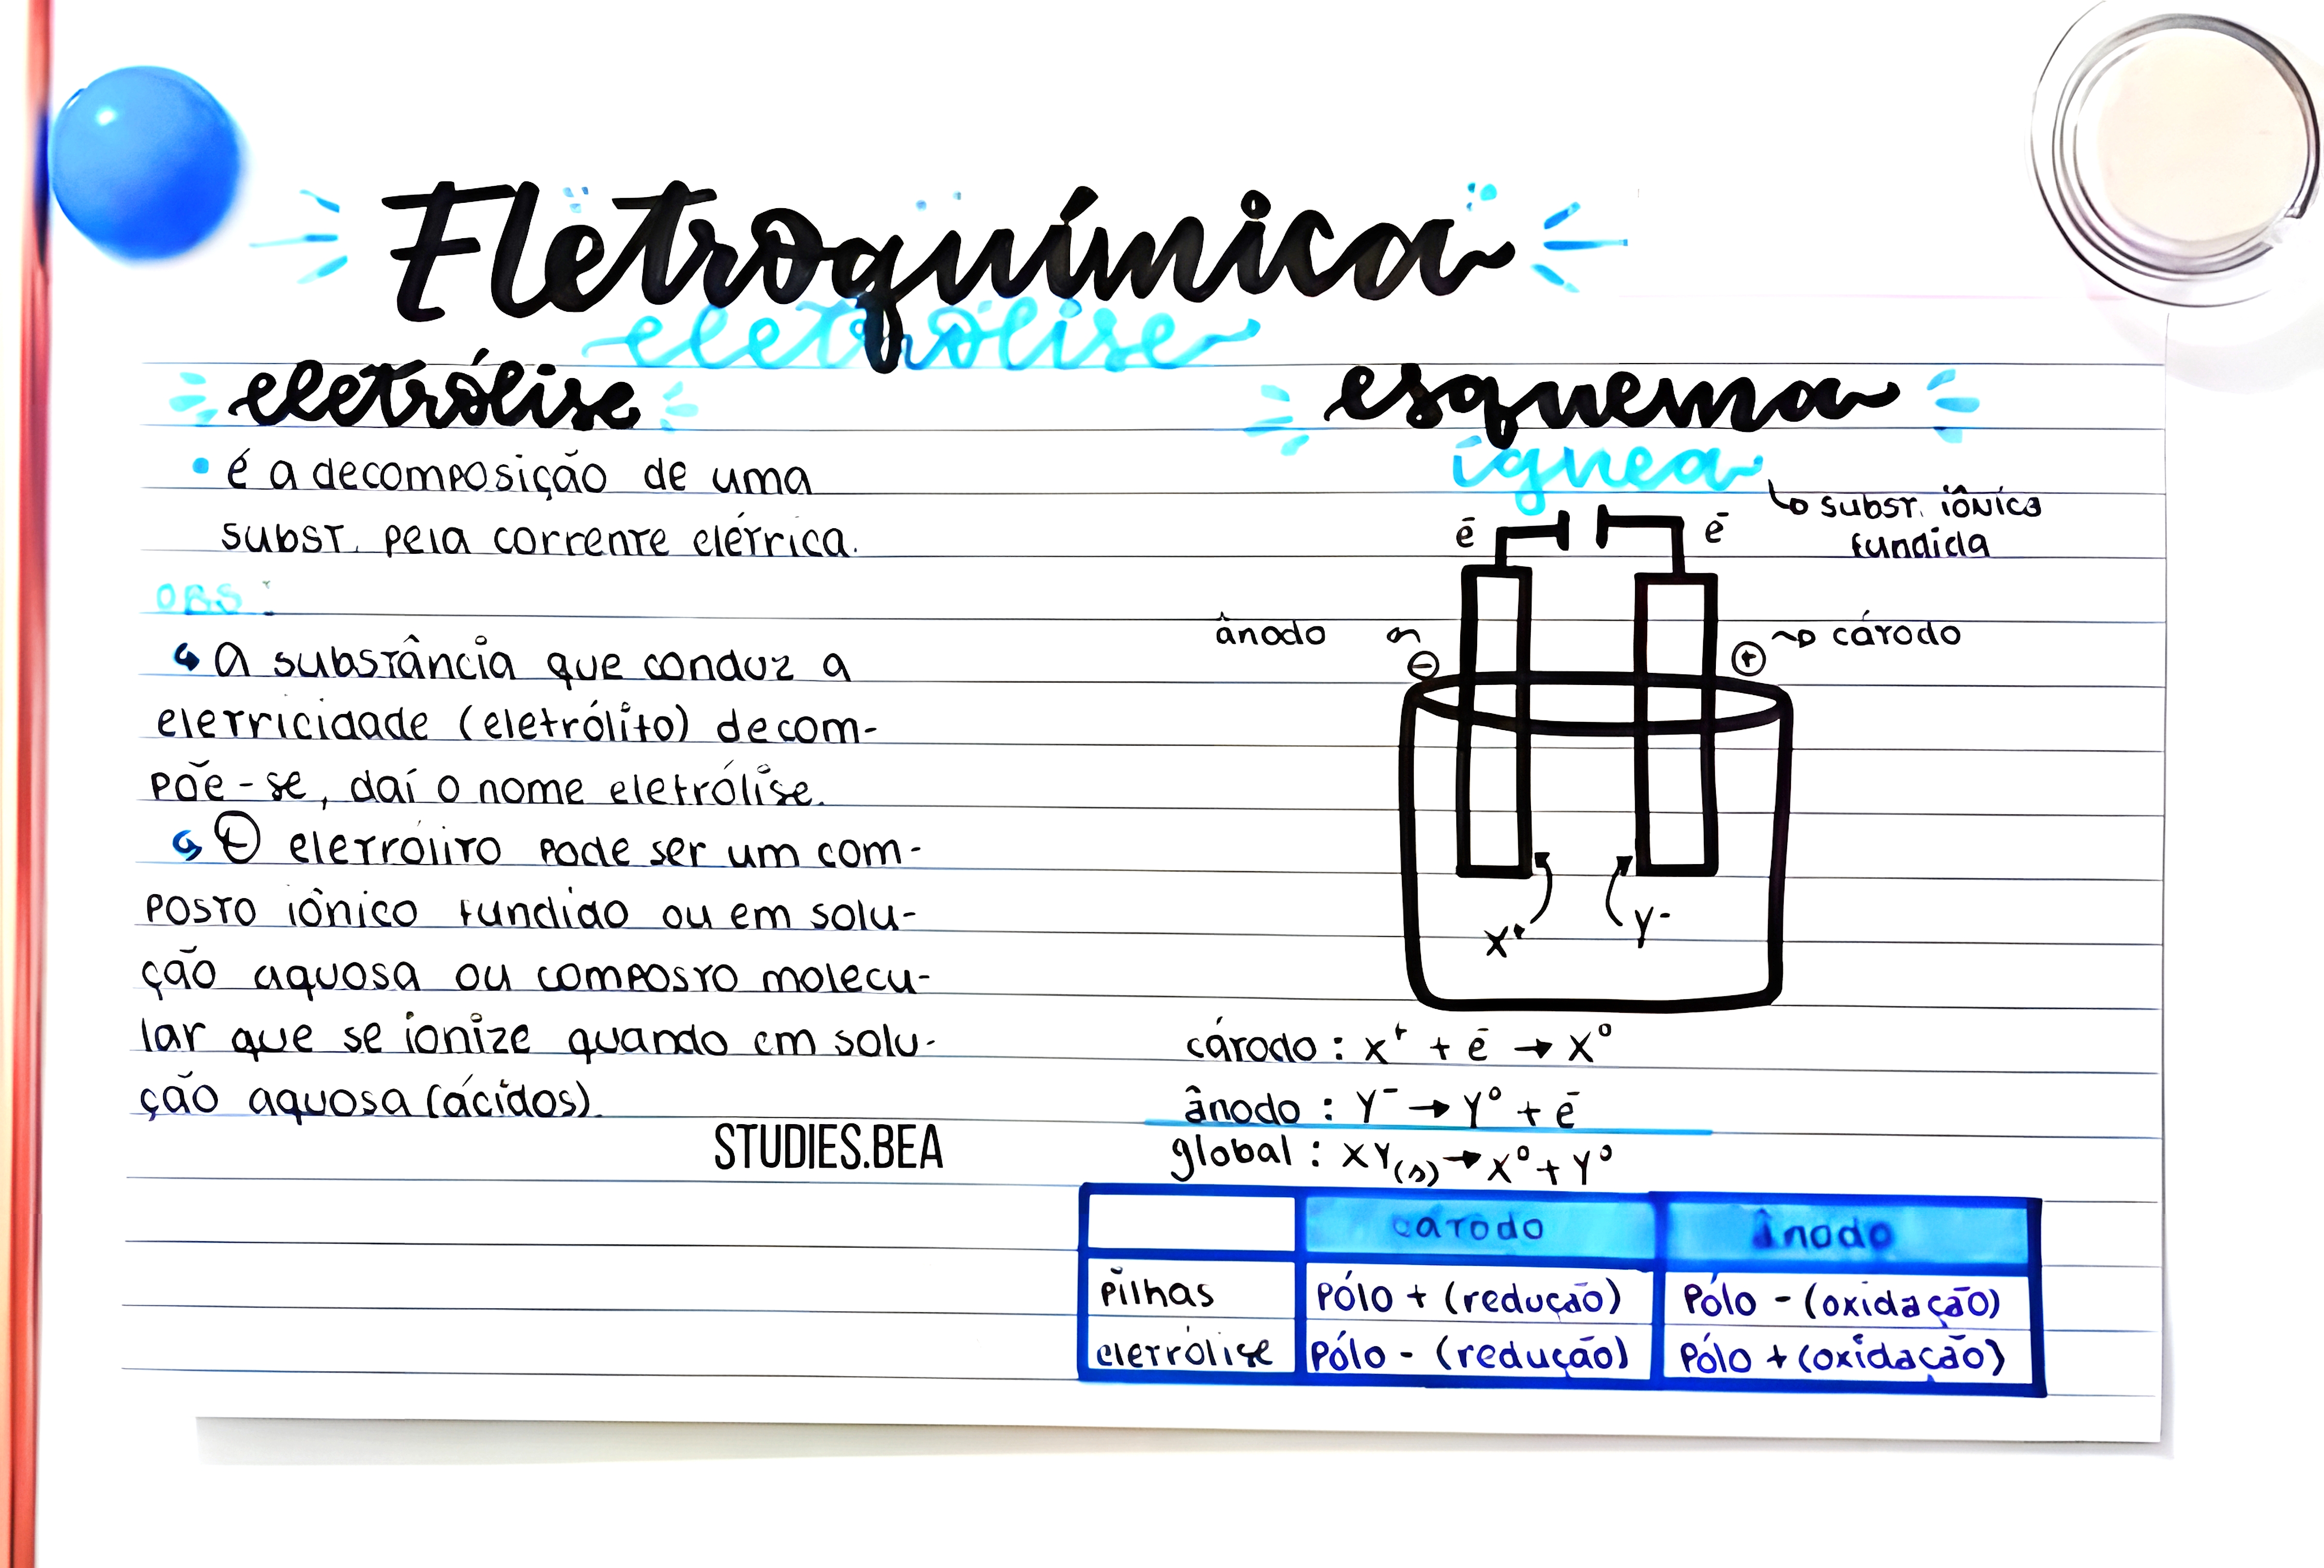 Eletroquímica
eletrólise
eletrólise
• é a decomposição de uma
subst. pela corrente elétrica.
OBS:
↳ A substância que conduz a
eletricidade (eletrólito) decom-
põe-se, daí o nome eletrólise.
↳ O eletrólito pode ser um com-
posto iônico fundido ou em solu-
ção aquosa ou composto molecu-
lar que se ionize quando em solu-
ção aquosa (ácidos).
STUDIES.BEA
esquema
ígnea
↳ subst. iônica
fundida
ē ē
ânodo
cátodo
⊖ ⊕
X⁺ Y⁻
cátodo: X⁺ + ē → X⁰
ânodo: Y⁻ → Y⁰ + ē
global: XY(s) → X⁰ + Y⁰
cátodo ânodo
pilhas Pólo + (redução) Pólo - (oxidação)
eletrólise Pólo - (redução) Pólo + (oxidação)